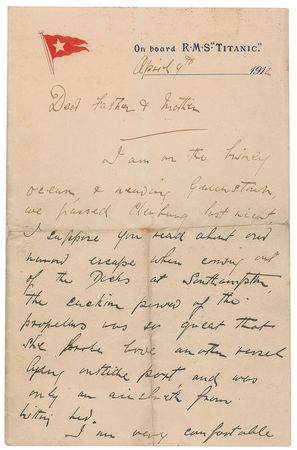 On board R·M·S "TITANIC."
April 9th 1912
Dear Father & Mother
I am on the briney
ocean & nearing Queenstown,
we passed Cherbourg last night,
I suppose you read about our
narrow escape when coming out
of the Docks at Southampton,
the suction power of the
propellers was so great that
she broke another vessel
lying outside port, and was
only an from
hitting her.
I am very comfortable